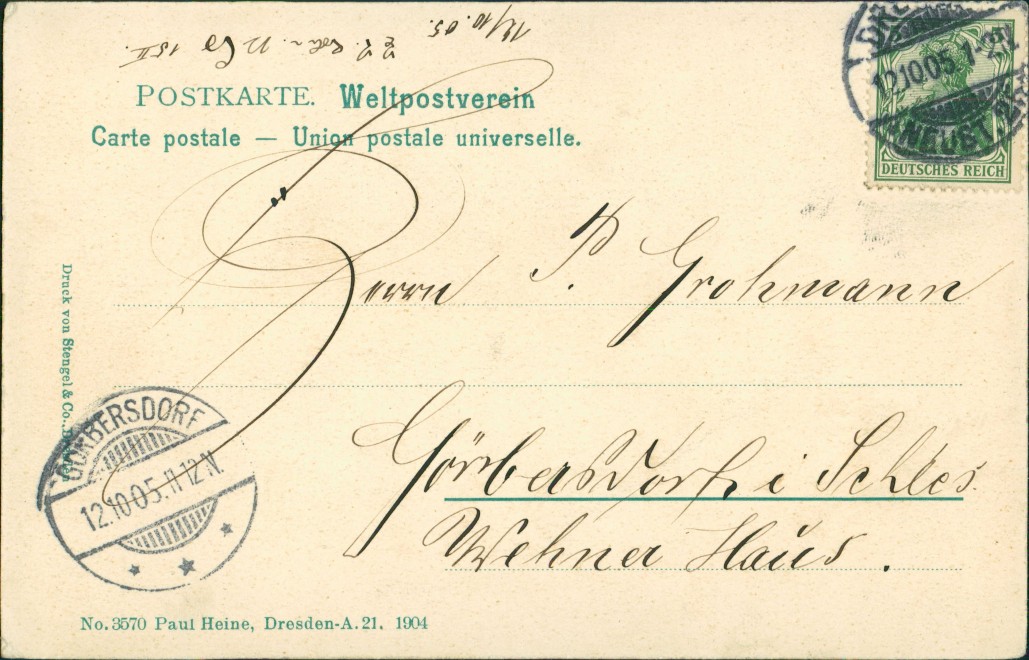 12/10.05.
POSTKARTE. Weltpostverein
Carte postale — Union postale universelle.
12.10.05. 1-2N.
NEUST
DEUTSCHES REICH
Herrn P. Grohmann
Görbersdorf i Schles.
Wehner Haus.
Druck von Stengel & Co.,
GÖRBERSDORF
12.10.05. 11-12 N.
No. 3570 Paul Heine, Dresden-A. 21. 1904